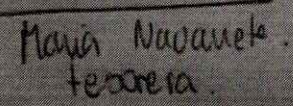 María Navarrete.
tesorera.